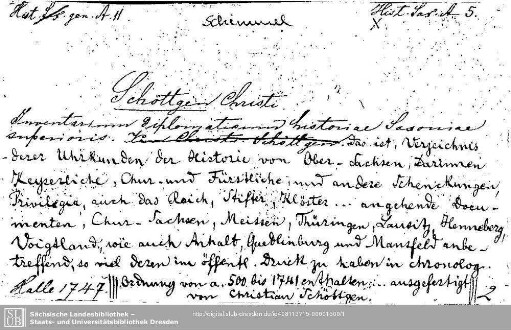 Hist. Sax. gen. A. 11
Schimmel
Hist. Sax. A 5.
Schöttgen Christi
Inventarium diplomaticum historiae Saxoniae
superioris. Von Christi Schöttgen. Das ist, Verzeichnis
derer Uhrkunden der Historie von Ober-Sachsen, darinnen
Keyserliche, Chur- und Fürstliche, und andere Schenckungen,
Privilegia, auch das Reich, Stifter, Klöster ... angehende Docu-
menten, Chur-Sachsen, Meissen, Thüringen, Lausitz, Henneberg,
Voigtland, wie auch Anhalt, Quedlinburg und Mansfeld anbe-
treffend, so viel deren im öffentl. Druck zu haben in chronolog.
Halle 1747 Ordnung von a. 500 bis 1741 enthalten; ... ausgefertigt
von Christian Schöttgen. 2
SLUB
Sächsische Landesbibliothek –
Staats- und Universitätsbibliothek Dresden